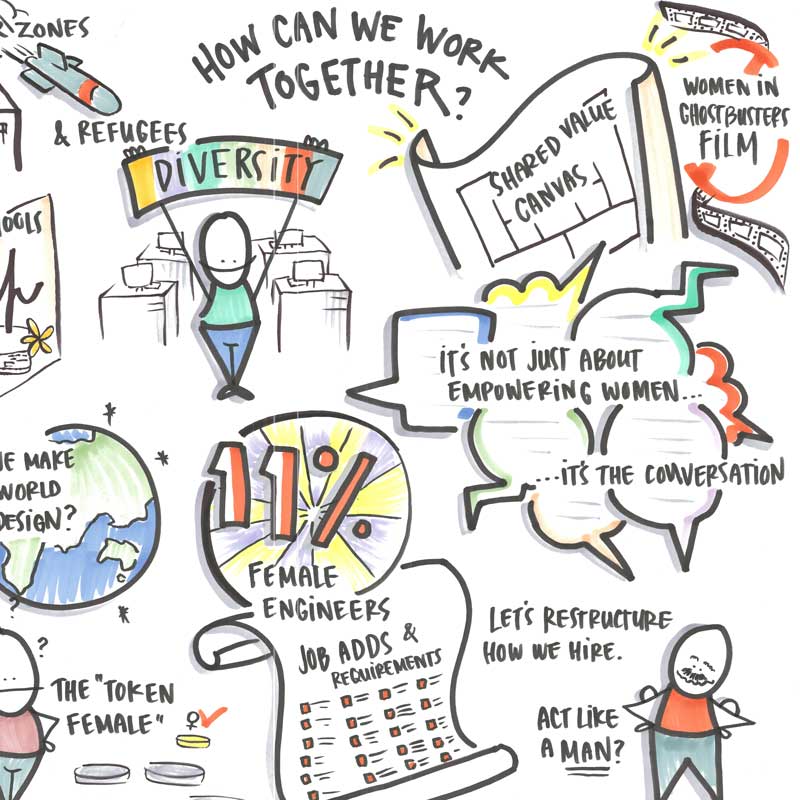 ZONES
& REFUGEES
HOW CAN WE WORK
TOGETHER?
DIVERSITY
SHARED VALUE
CANVAS
WOMEN IN
GHOSTBUSTERS
FILM
IT'S NOT JUST ABOUT
EMPOWERING WOMEN...
...IT'S THE CONVERSATION
MAKE
WORLD
DESIGN?
11%
FEMALE
ENGINEERS
JOB ADDS &
REQUIREMENTS
LET'S RESTRUCTURE
HOW WE HIRE.
THE "TOKEN
FEMALE"
?
?
ACT LIKE
A MAN?